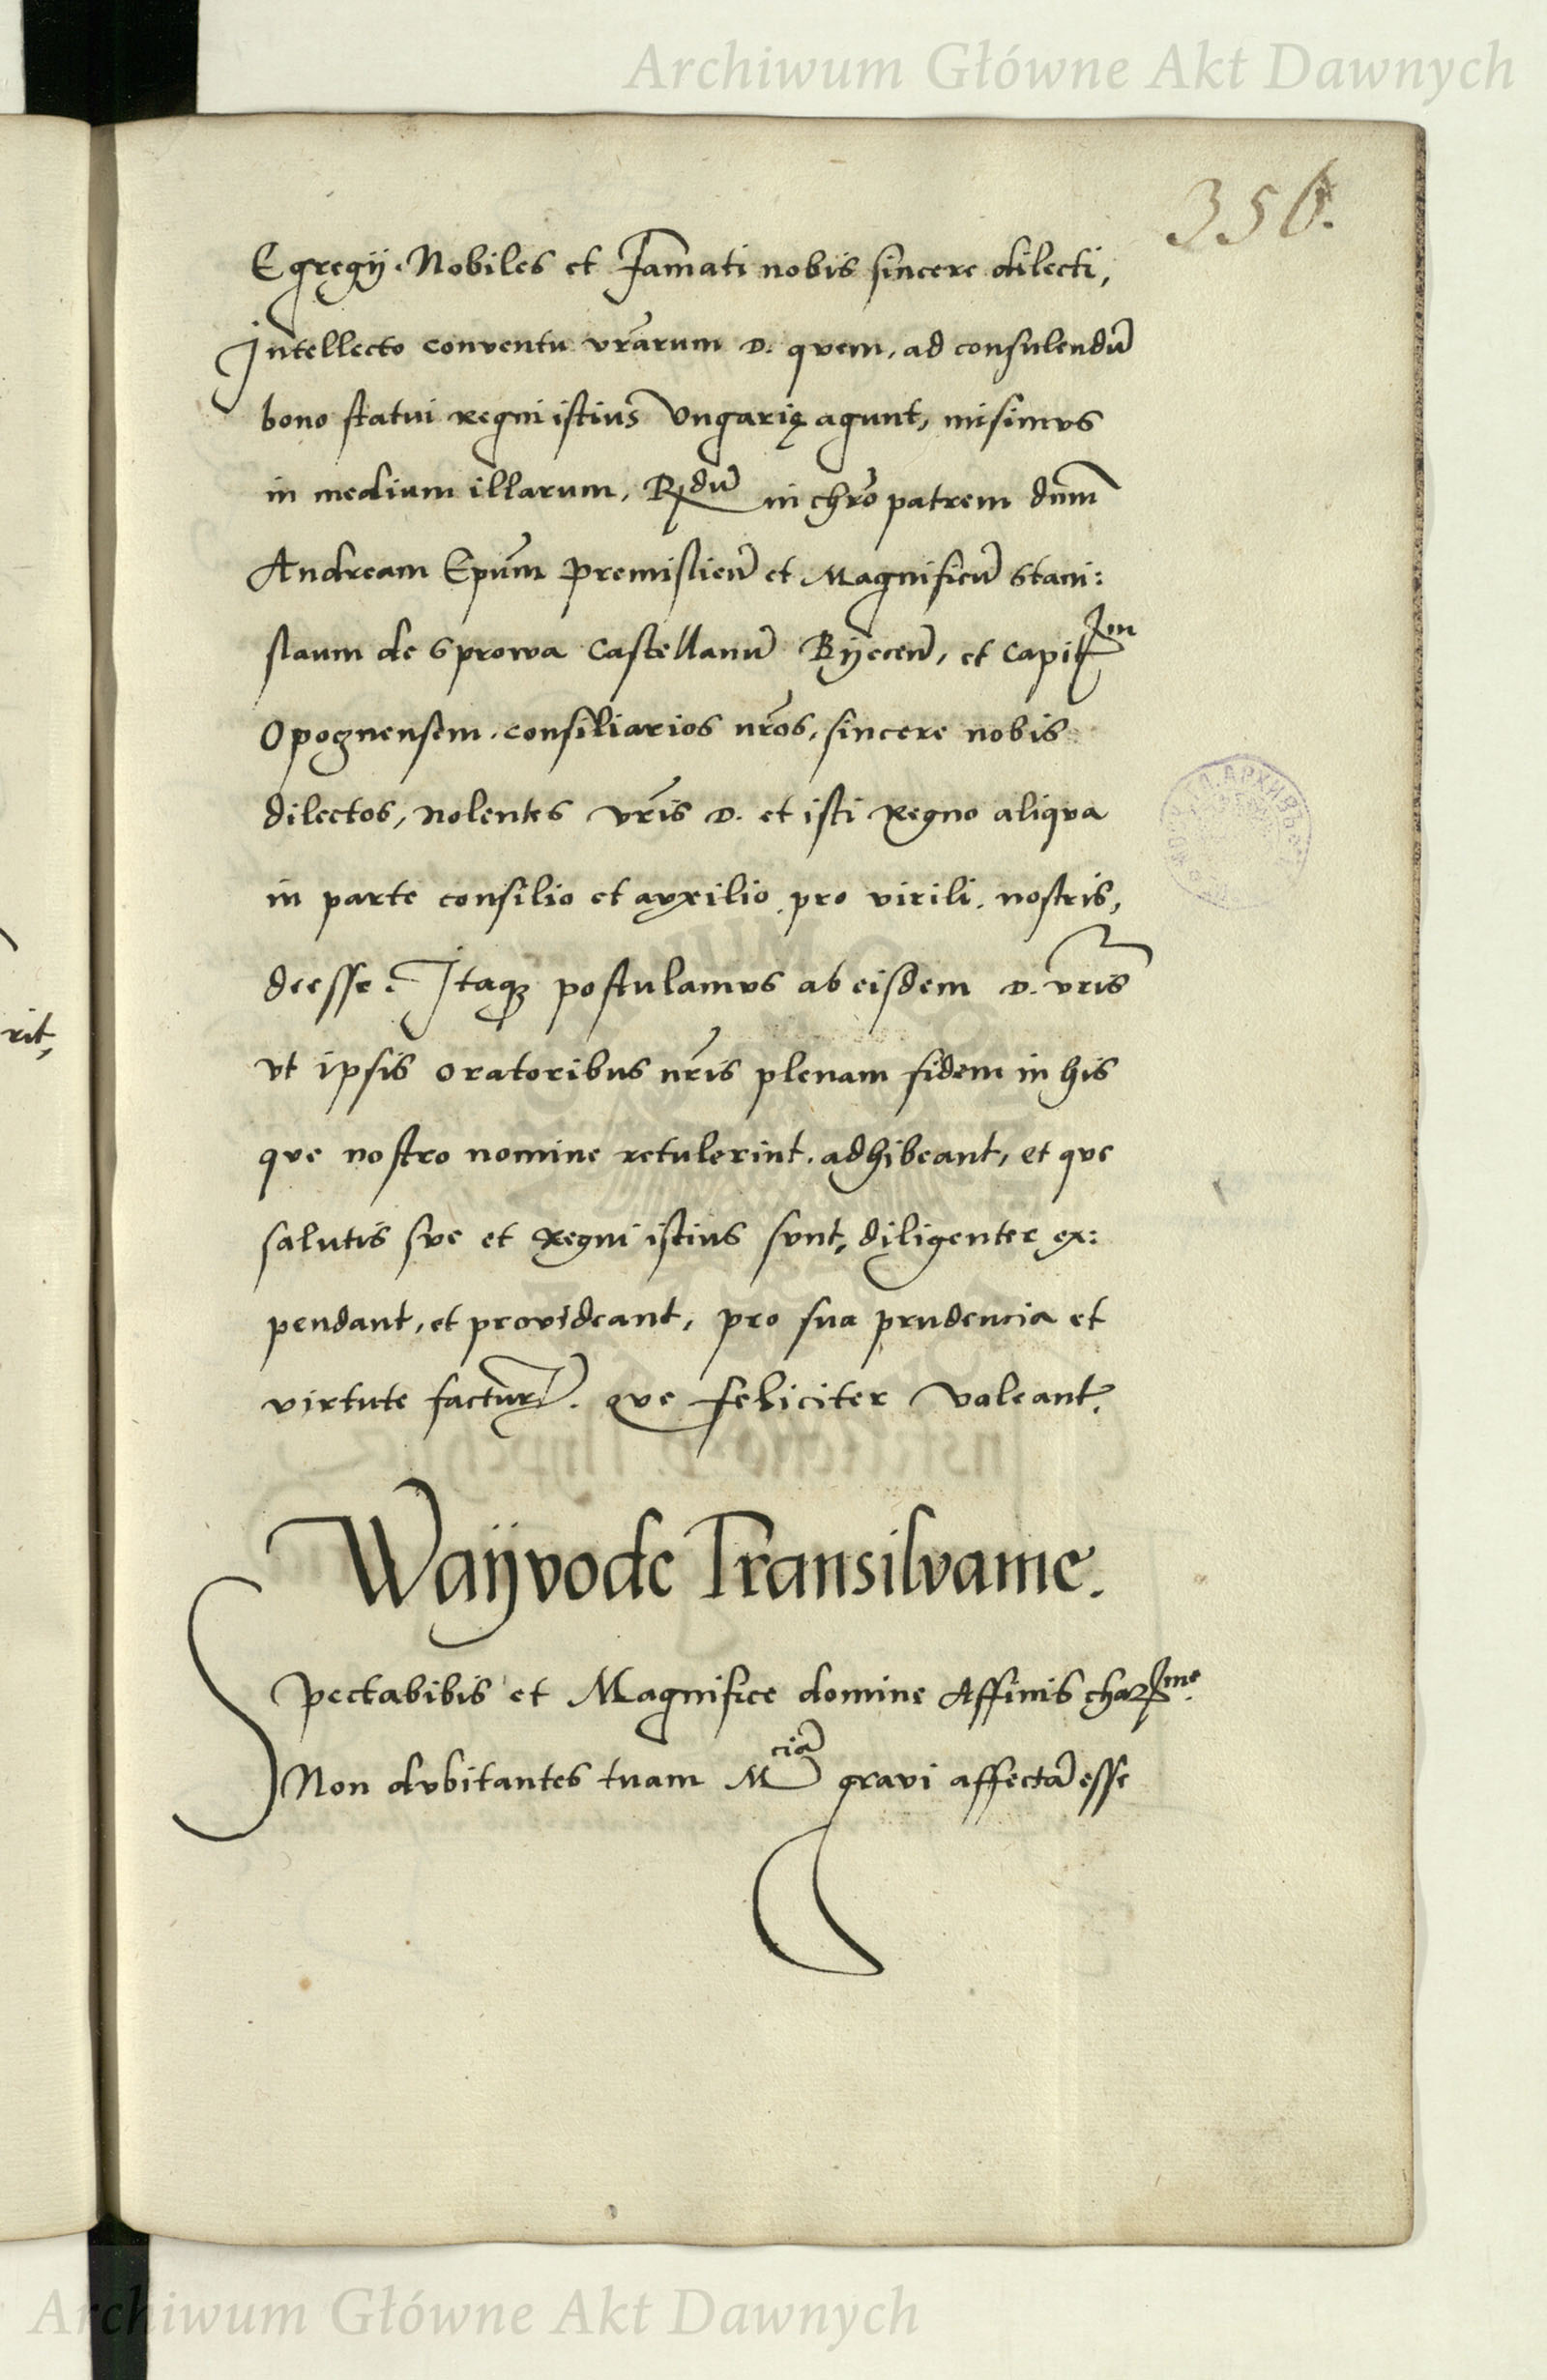 Archiwum Główne Akt Dawnych
356.
Egregij. Nobiles et Famati nobis sincere dilecti,
Intellecto conventu vrarum D. qvem, ad consulendū
bono statui Regni istius Vngarię agunt, misimvs
in medium illarum, Rdū in chro patrem dnm
Andream Epum Premislień et Magnificū Stani:
slaum de Sprowa Castellanū Bijeceń, et Capitm
Opoznensem. consiliarios nros, sincere nobis
dilectos, nolentes vris D. et isti Regno aliqva
in parte consilio et avxilio pro virili. nostris,
deesse. Itaqȝ postulamvs ab eisdem D. vris
vt ipsis oratoribus nris plenam fidem in his
qve nostro nomine retulerint. adhibeant, et qve
salutis sve et Regni istius svnt, diligenter ex:
pendant, et provideant, pro sua prudencia et
virtute factur. Qve feliciter valeant.
Waijvode Transilvanie.
Spectabibis et Magnifice domine Affinis charme.
Non dvbitantes tuam Mciā gravi affectā esse
rit,
Archiwum Główne Akt Dawnych